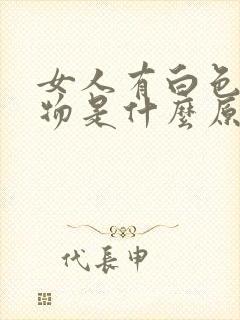 女人有白色
物是什麼原
代長申